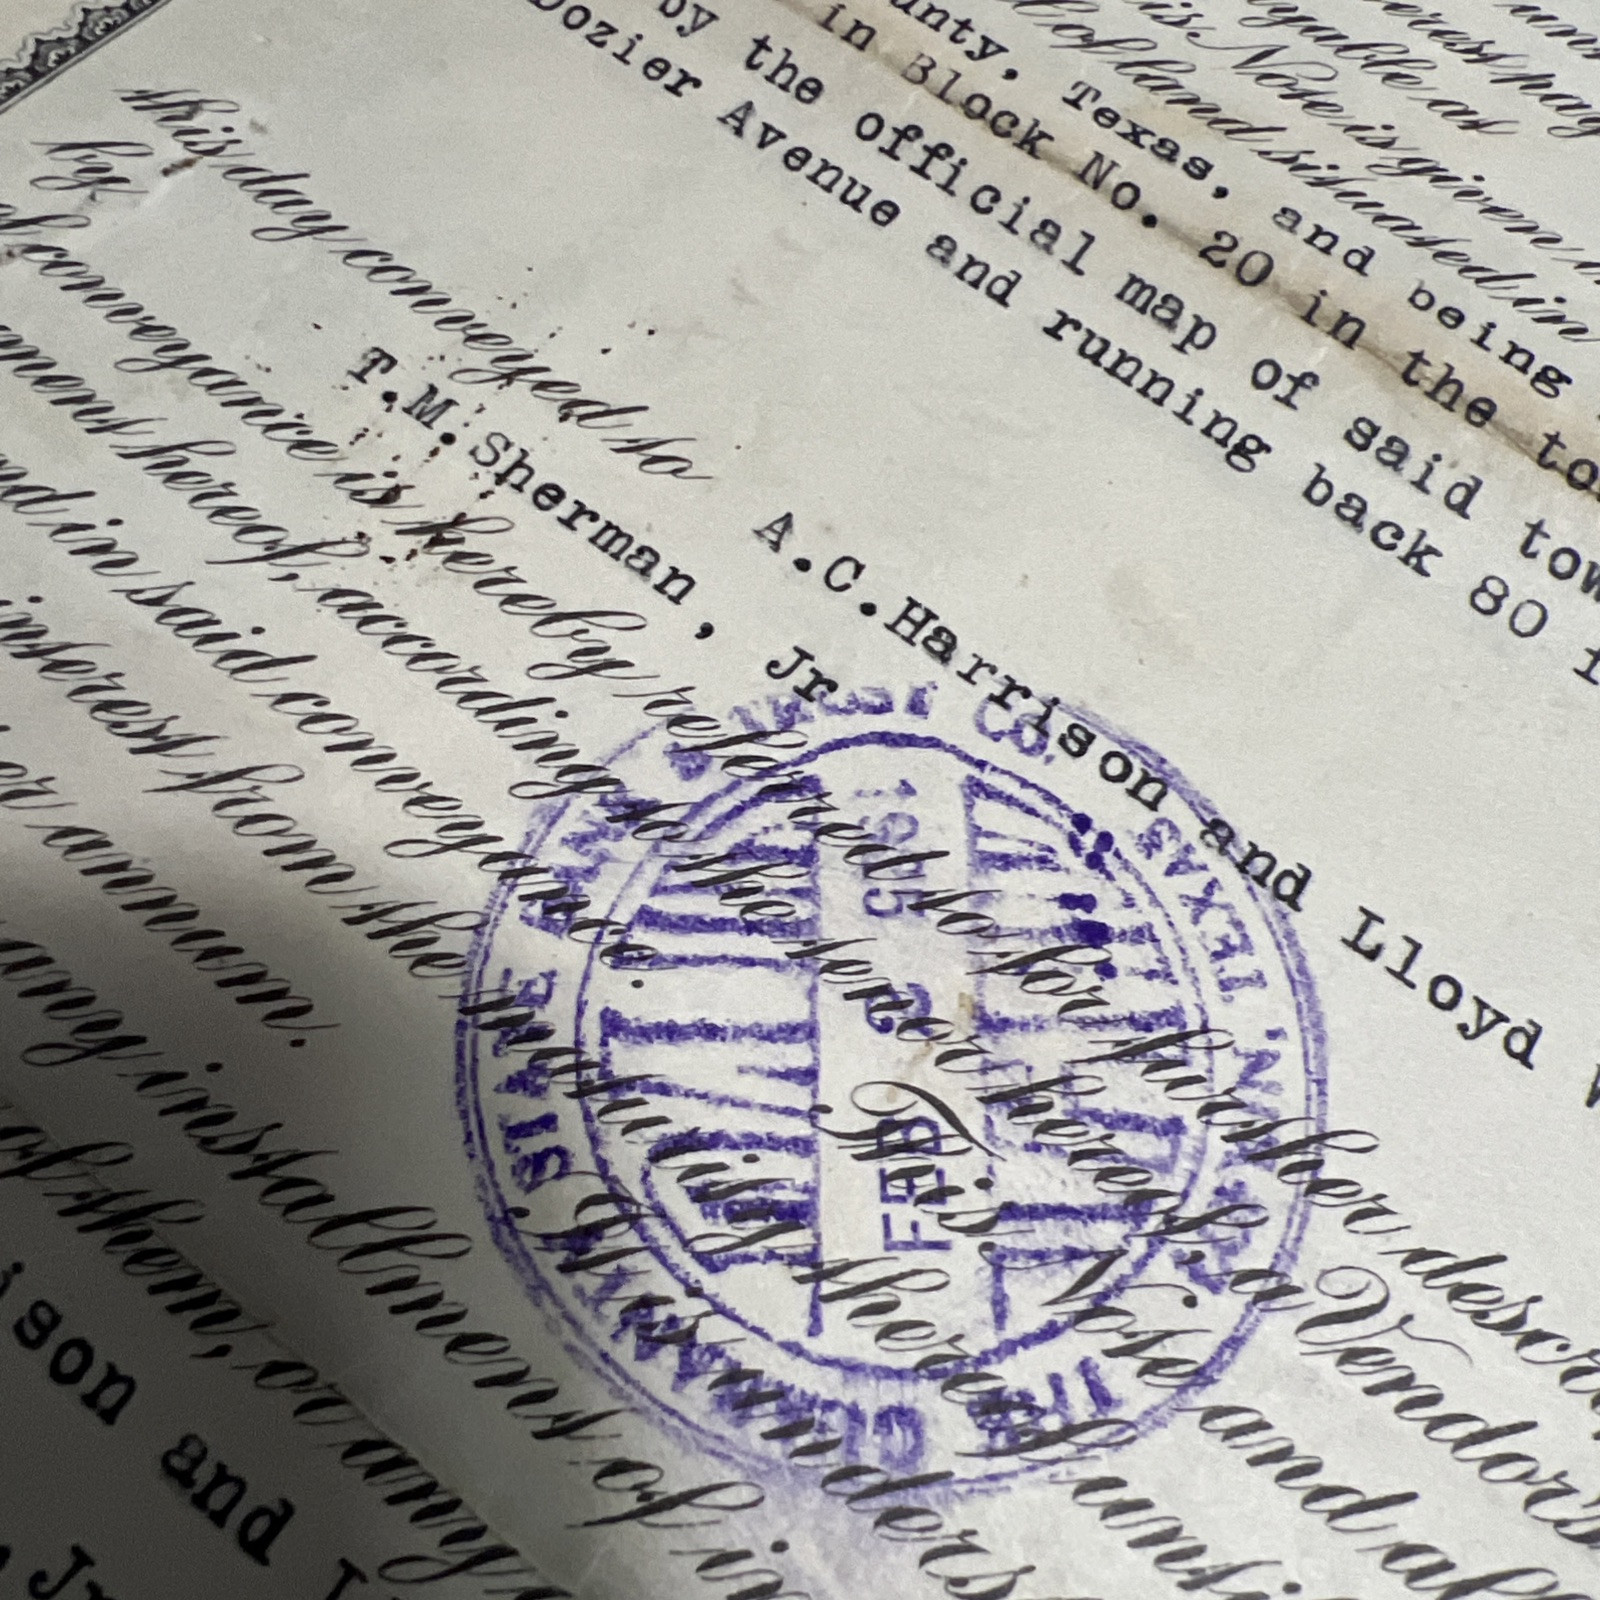 payable at
this Note is given
of land situated in
unty, Texas, and being
in Block No. 20 in the to
by the official map of said tow
Dozier Avenue and running back 80 f
this day conveyed to A.C.Harrison and Lloyd
by T.M.Sherman, Jr.
of conveyance is hereby referred to for further descri
ment hereof, according to the tenor hereof, a Vendors
nd in said conveyance. This Note and all
interest from the maturity thereof until
er annum.
any installment of in
of them, or any
ison and
Jr
STATE BANK & TRUST CO.
TEXAS
FEB